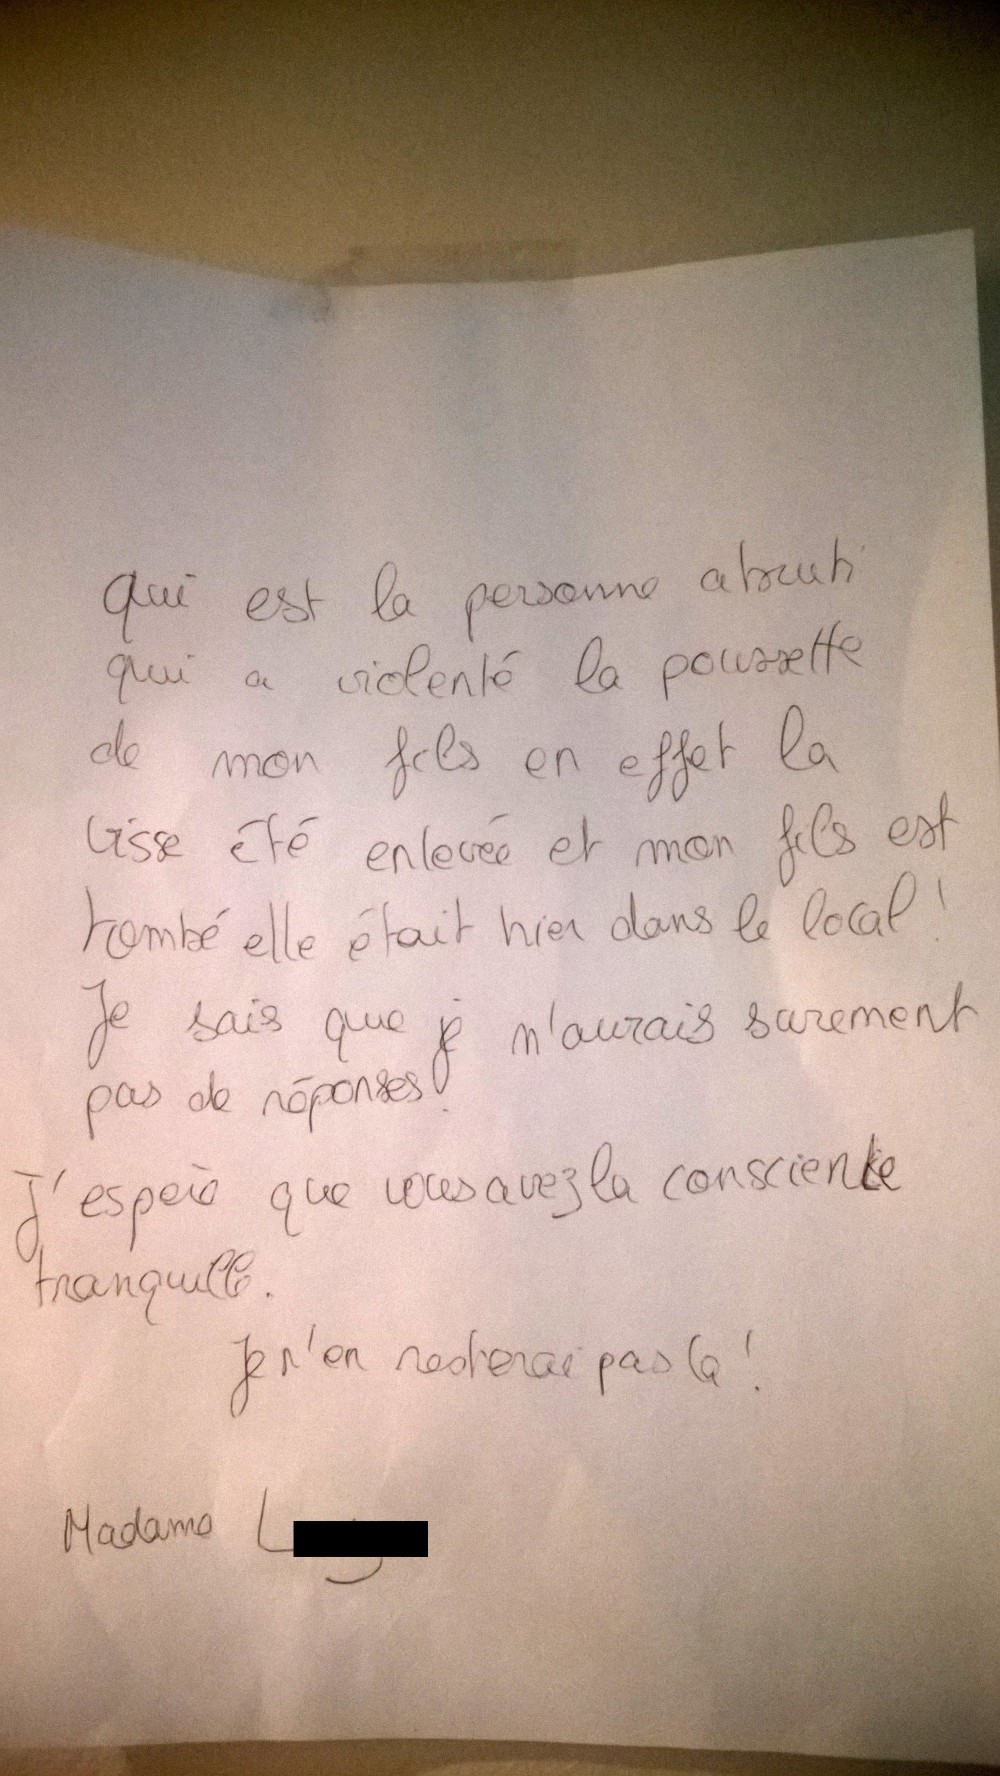 Qui est la personne abruti
qui a violenté la poussette
de mon fils en effet la
visse été enlevée et mon fils est
tombé elle était hier dans le local !
Je sais que je n'aurais surement
pas de réponses !
J'espère que vous avez la conscience
tranquille.
Je n'en resterai pas là !
Madame L